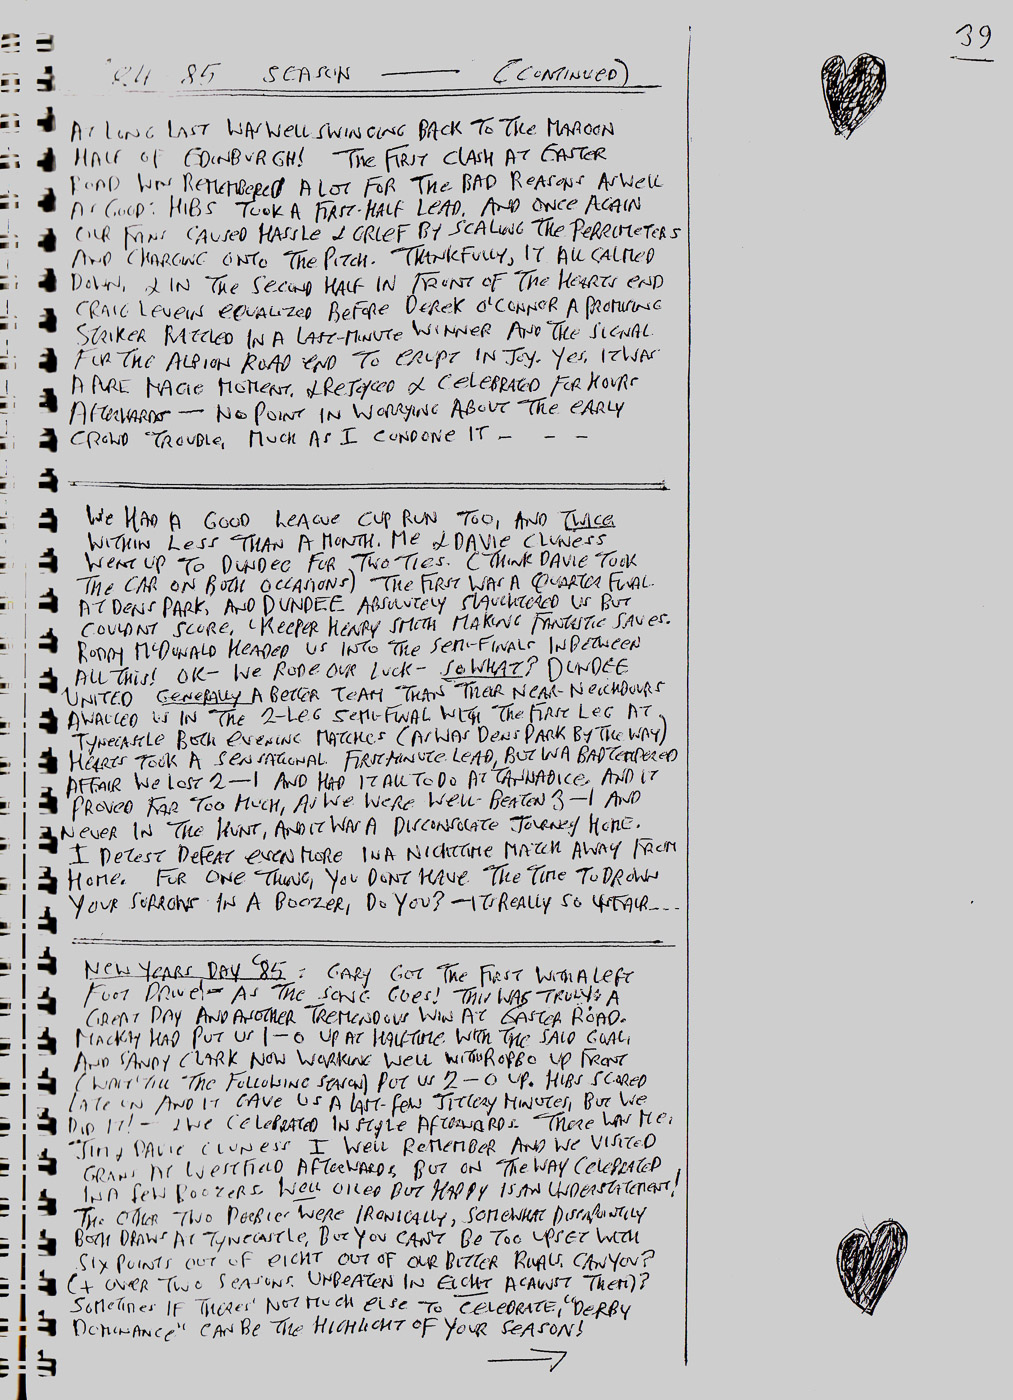 39
'84 85 SEASON —— (CONTINUED)
AT LONG LAST WAS WELL SWINGING BACK TO THE MAROON
HALF OF EDINBURGH! THE FIRST CLASH AT EASTER
ROAD WAS REMEMBERED A LOT FOR THE BAD REASONS ASWELL
AS GOOD: HIBS TOOK A FIRST-HALF LEAD, AND ONCE AGAIN
OUR FANS CAUSED HASSLE & GRIEF BY SCALING THE PERRIMETERS
AND CHARGING ONTO THE PITCH. THANKFULLY, IT ALL CALMED
DOWN, & IN THE SECOND HALF IN FRONT OF THE HEARTS END
CRAIG LEVEIN EQUALIZED BEFORE DEREK O'CONNOR A PROMISING
STRIKER RATTLED IN A LAST-MINUTE WINNER AND THE SIGNAL
FOR THE ALBION ROAD END TO ERUPT IN JOY. YES, IT WAS
A PURE MAGIC MOMENT, & REJOYCED & CELEBRATED FOR HOURS
AFTERWARDS — NO POINT IN WORRYING ABOUT THE EARLY
CROWD TROUBLE, MUCH AS I CONDONE IT - - -
WE HAD A GOOD LEAGUE CUP RUN TOO, AND TWICE
WITHIN LESS THAN A MONTH. ME & DAVIE CLUNESS
WENT UP TO DUNDEE FOR TWO TIES. (THINK DAVIE TOOK
THE CAR ON BOTH OCCASIONS) THE FIRST WAS A QUARTER FINAL.
AT DENS PARK, AND DUNDEE ABSOLUTELY SLAUGHTERED US BUT
COULDNT SCORE, 'KEEPER HENRY SMITH MAKING FANTASTIC SAVES.
RODDY McDONALD HEADED US INTO THE SEMI-FINALS INBETWEEN
ALL THIS! OK — WE RODE OUR LUCK — SO WHAT? DUNDEE
UNITED GENERALLY A BETTER TEAM THAN THEIR NEAR-NEIGHBOURS
AWAITED US IN THE 2-LEG SEMI-FINAL WITH THE FIRST LEG AT
TYNECASTLE BOTH EVENING MATCHES (AS WAS DENS PARK BY THE WAY)
HEARTS TOOK A SENSATIONAL FIRST MINUTE LEAD, BUT IN A BAD TEMPERED
AFFAIR WE LOST 2-1 AND HAD IT ALL TO DO AT TANNADICE. AND IT
PROVED FAR TOO MUCH, AS WE WERE WELL-BEATEN 3-1 AND
NEVER IN THE HUNT, AND IT WAS A DISCONSOLATE JOURNEY HOME.
I DETEST DEFEAT EVEN MORE IN A NIGHTTIME MATCH AWAY FROM
HOME. FOR ONE THING, YOU DONT HAVE THE TIME TO DROWN
YOUR SORROWS IN A BOOZER, DO YOU? — IT'S REALLY SO UNFAIR...
NEW YEARS DAY '85: GARY GOT THE FIRST WITH A LEFT
FOOT DRIVE! — AS THE SONG GOES! THIS WAS TRULY A
GREAT DAY AND ANOTHER TREMENDOUS WIN AT EASTER ROAD.
MACKAY HAD PUT US 1-0 UP AT HALFTIME WITH THE SAID GOAL,
AND SANDY CLARK NOW WORKING WELL WITH ROBBO UP FRONT
(WAIT 'TILL THE FOLLOWING SEASON) PUT US 2-0 UP. HIBS SCORED
LATE ON AND IT GAVE US A LAST-FEW JITTERY MINUTES, BUT WE
DID IT! — & WE CELEBRATED IN STYLE AFTERWARDS. THERE WAS ME,
JIM & DAVIE CLUNESS I WELL REMEMBER AND WE VISITED
GRANS AT WESTFIELD AFTERWARDS, BUT ON THE WAY CELEBRATED
IN A FEW BOOZERS. WELL OILED BUT HAPPY IS AN UNDERSTATEMENT!
THE OTHER TWO DERBIES WERE IRONICALLY, SOMEWHAT DISAPPOINTINGLY
BOTH DRAWS AT TYNECASTLE, BUT YOU CAN'T BE TOO UPSET WITH
SIX POINTS OUT OF EIGHT OUT OF OUR BITTER RIVALS CAN YOU?
(+ OVER TWO SEASONS UNBEATEN IN EIGHT AGAINST THEM)?
SOMETIMES IF THERES NOT MUCH ELSE TO CELEBRATE, "DERBY
DOMINANCE" CAN BE THE HIGHLIGHT OF YOUR SEASON!